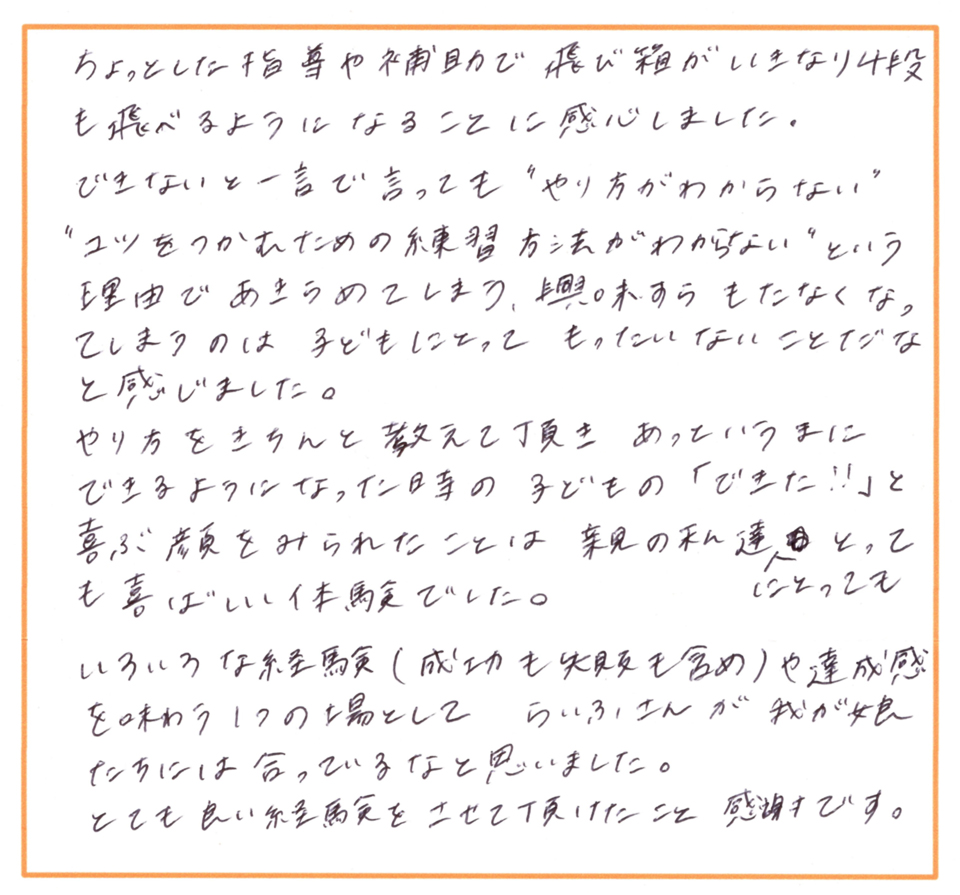 ちょっとした指導や補助で 飛び箱がいきなり4段
も飛べるようになることに感心しました。
できないと一言で言っても"やり方がわからない"
"コツをつかむための練習方法がわからない"という
理由であきらめてしまう、興味すらもたなくなっ
てしまうのは 子どもにとって もったいないことだな
と感じました。
やり方をきちんと教えて頂き あっというまに
できるようになった時の 子どもの「できた!!」と
喜ぶ顔をみられたことは 親の私達 とって
にとっても
も喜ばしい体験でした。
いろいろな経験(成功も失敗も含め)や達成感
を味わう1つの場として らいふさんが 我が娘
たちには合っているなと思いました。
とても良い経験をさせて頂けたこと 感謝です。